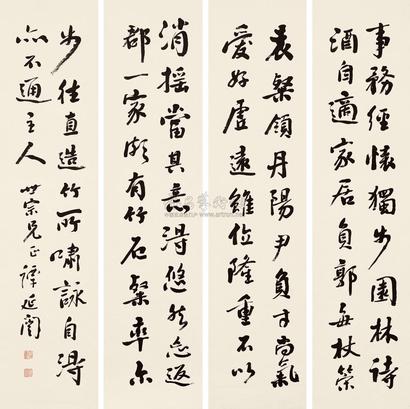 事務經懷獨步園林詩
酒自適家居負郭每杖策
袁粲領丹陽尹負才尚氣
愛好虛遠雖位隆重不以
消搖當其意得悠然忘返
郡一家頗有竹石粲率尔
步往直造竹所嘯詠自得
亦不通主人 世宗兄正 譚延闓